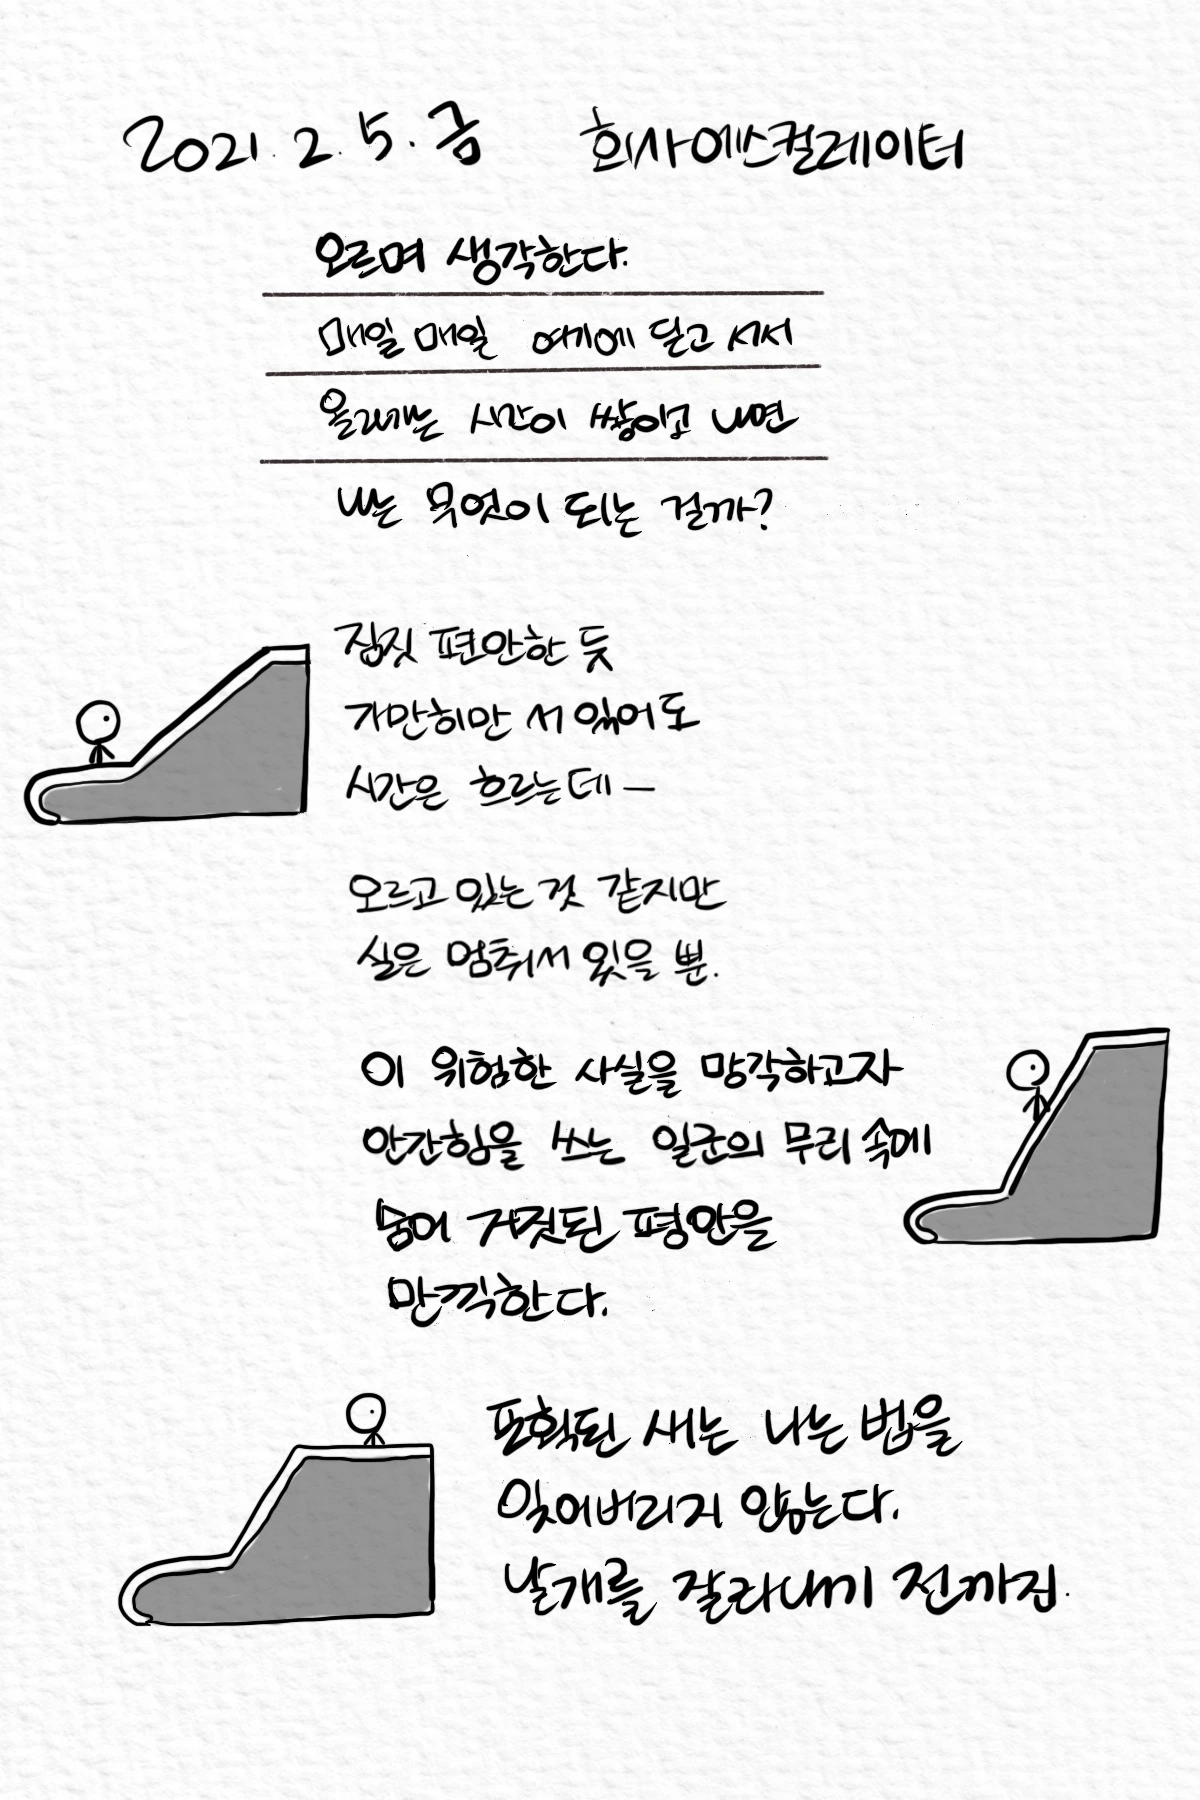 2021. 2. 5. 금 회사에스컬레이터
오르며 생각한다.
매일 매일 여기에 달고 서서
올라가는 시간이 쌓이고 나면
나는 무엇이 되는 걸까?
짐짓 편안한 듯
가만히만 서 있어도
시간은 흐르는데 —
오르고 있는 것 같지만
실은 멈춰서 있을 뿐.
이 위험한 사실을 망각하고자
안간힘을 쓰는 일군의 무리 속에
숨어 거짓된 평안을
만끽한다.
포획된 새는 나는 법을
잊어버리지 않는다.
날개를 잘라내기 전까진.